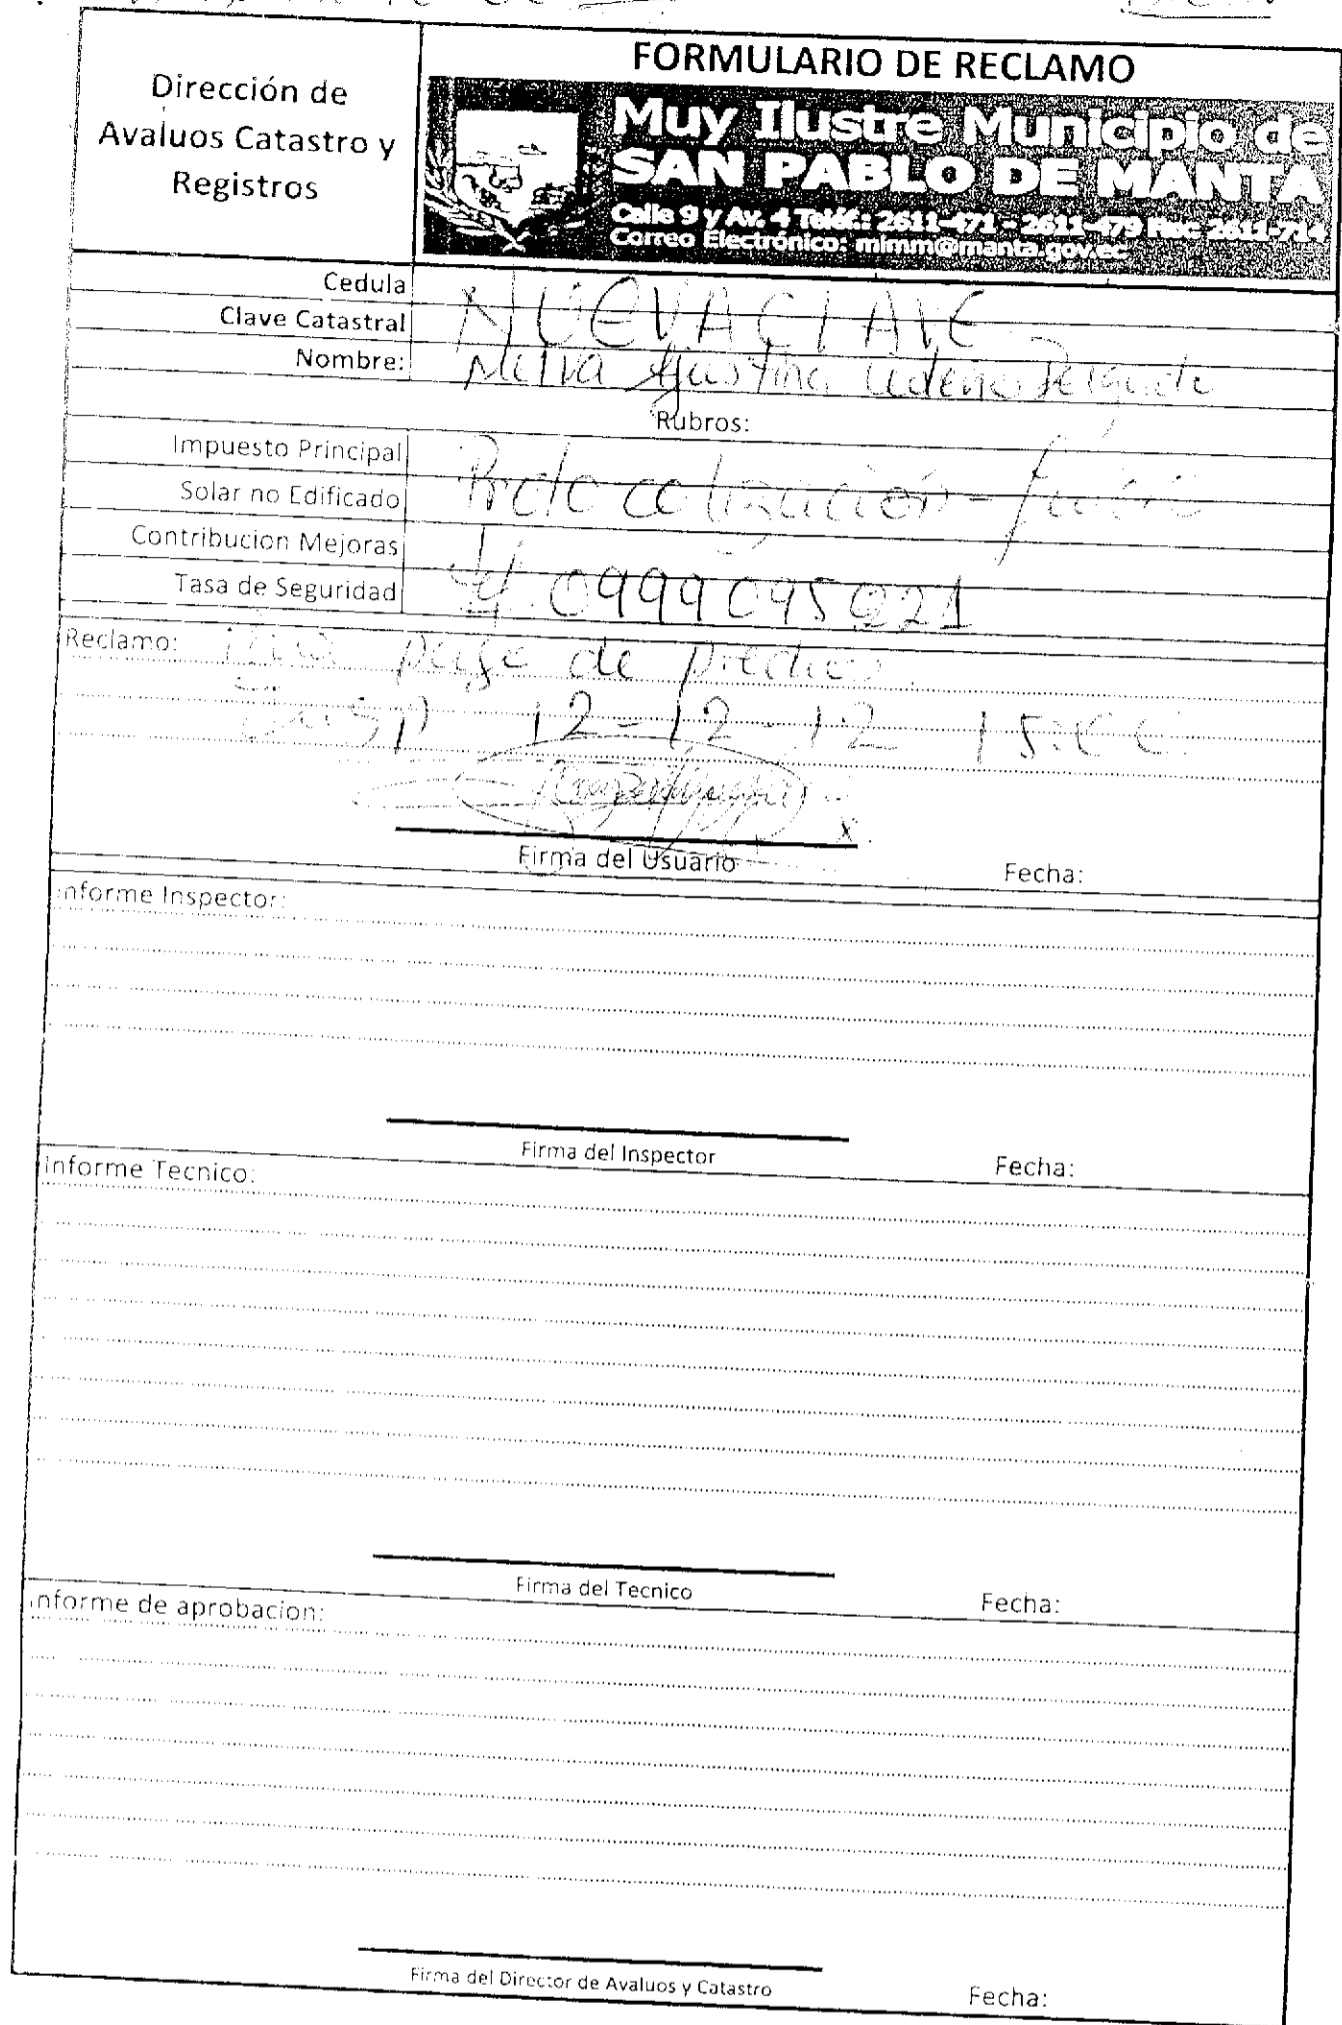 FORMULARIO DE RECLAMO
Dirección de
Avaluos Catastro y
Registros
Muy Ilustre Municipio de
SAN PABLO DE MANTA
Calle 9 y Av. 4 Teléf.: 2611-471 - 2611-479 Fax: 2611-714
Correo Electrónico: mimm@manta.gov.ec
Cedula
Clave Catastral NUEVA CLAVE
Nombre: Agustina Cedeño
Rubros:
Impuesto Principal
Solar no Edificado Protocolización -
Contribucion Mejoras
Tasa de Seguridad 0999095021
Reclamo: de
12-12-12 15:00
Firma del Usuario Fecha:
Informe Inspector:
Firma del Inspector Fecha:
Informe Tecnico:
Firma del Tecnico Fecha:
Informe de aprobacion:
Firma del Director de Avaluos y Catastro Fecha: